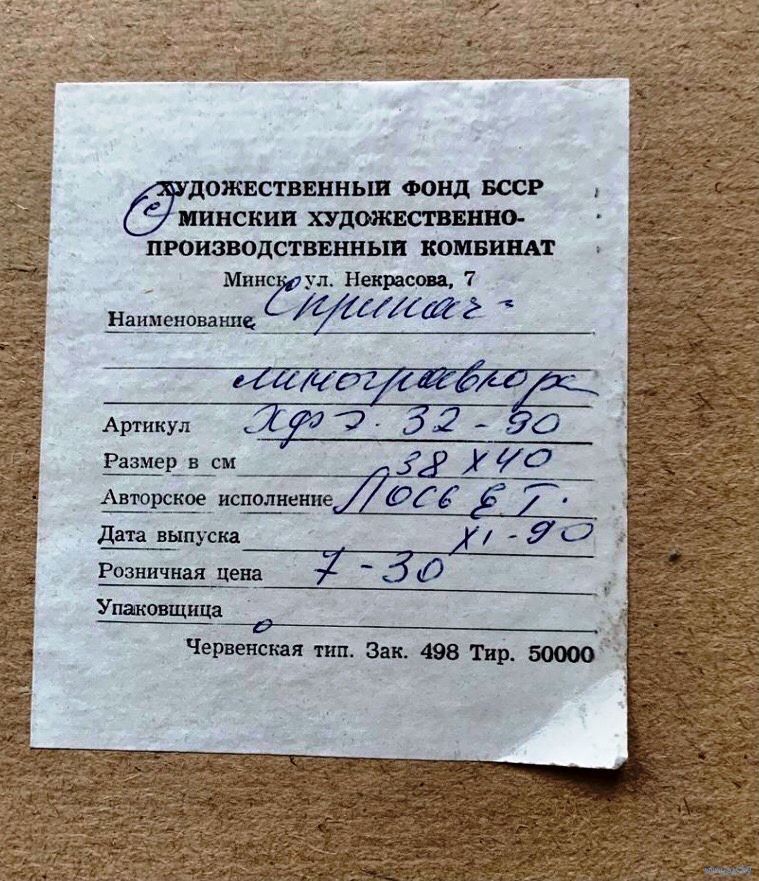 ХУДОЖЕСТВЕННЫЙ ФОНД БССР
с
МИНСКИЙ ХУДОЖЕСТВЕННО-
ПРОИЗВОДСТВЕННЫЙ КОМБИНАТ
Минск, ул. Некрасова, 7
Наименование Скрипач -
линогравюра
Артикул ХФЭ. 32-90
Размер в см 38 х 40
Авторское исполнение Лось Е.Г.
Дата выпуска XI-90
Розничная цена 7-30
Упаковщица
Червенская тип. Зак. 498 Тир. 50000